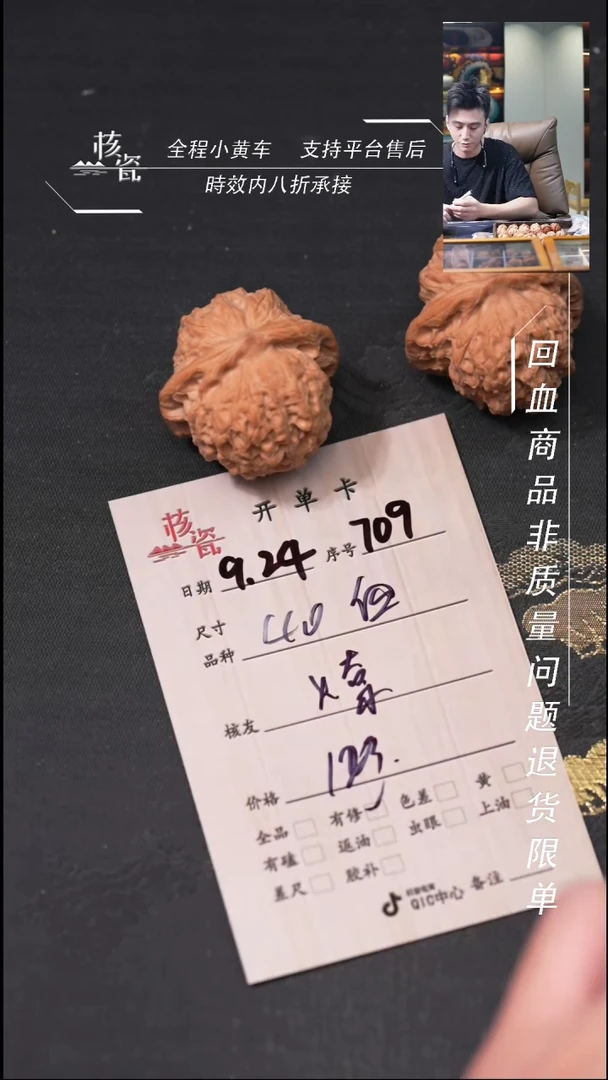 核瓷
全程小黄车 支持平台售后
時效内八折承接
回血商品非质量问题退货限单
核瓷
开单卡
日期 9.24 序号 709
尺寸
品种 440
核友
价格
全品 有修 色差 黄
有磕 返油 虫眼 上油
差尺 胶补
QIC中心 备注